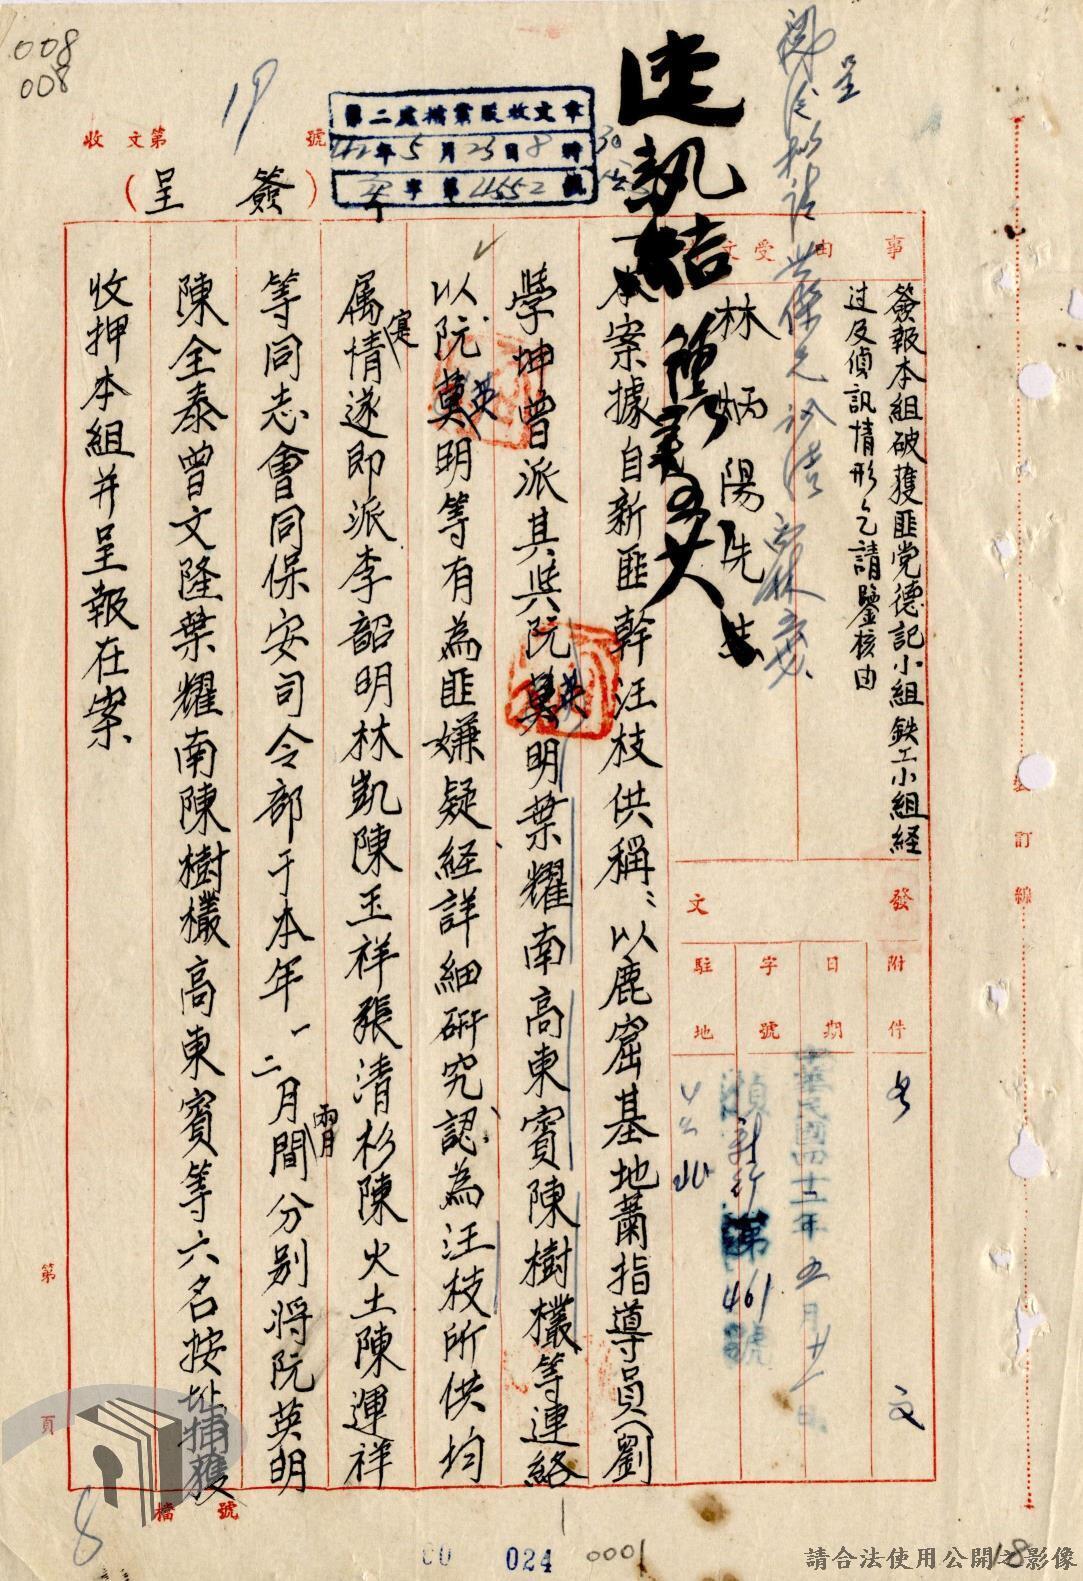 008
008
收文第 19 號
第二處檔案股收文章
42年5月23日8時30分
字第4552號
（簽呈）
速執結
閱後擬請
呈
事由
受文者
簽報本組破獲匪党德記小組鉄工小組経
过及偵訊情形乞請鑒核由
林炳陽先生
發文
附件
日期
字號
駐地
中華民國四十二年五月廿一日
偵 字 第461號
一、本案據自新匪幹汪枝供稱：以鹿窟基地蕭指導員(劉
學坤曾派其與阮英明葉耀南高東賓陳樹欉等連絡
以阮英明等有為匪嫌疑経詳細研究認為汪枝所供均
属實情遂即派李韶明林凱陳玉祥張清杉陳火土陳運祥
等同志會同保安司令部于本年一、二月間分别將阮英明
陳全泰曾文隆葉耀南陳樹欉高東賓等六名按址捕獲
收押本組并呈報在案
裝訂線
第 頁
檔號
8
00 024 0001
18
請合法使用公開之影像